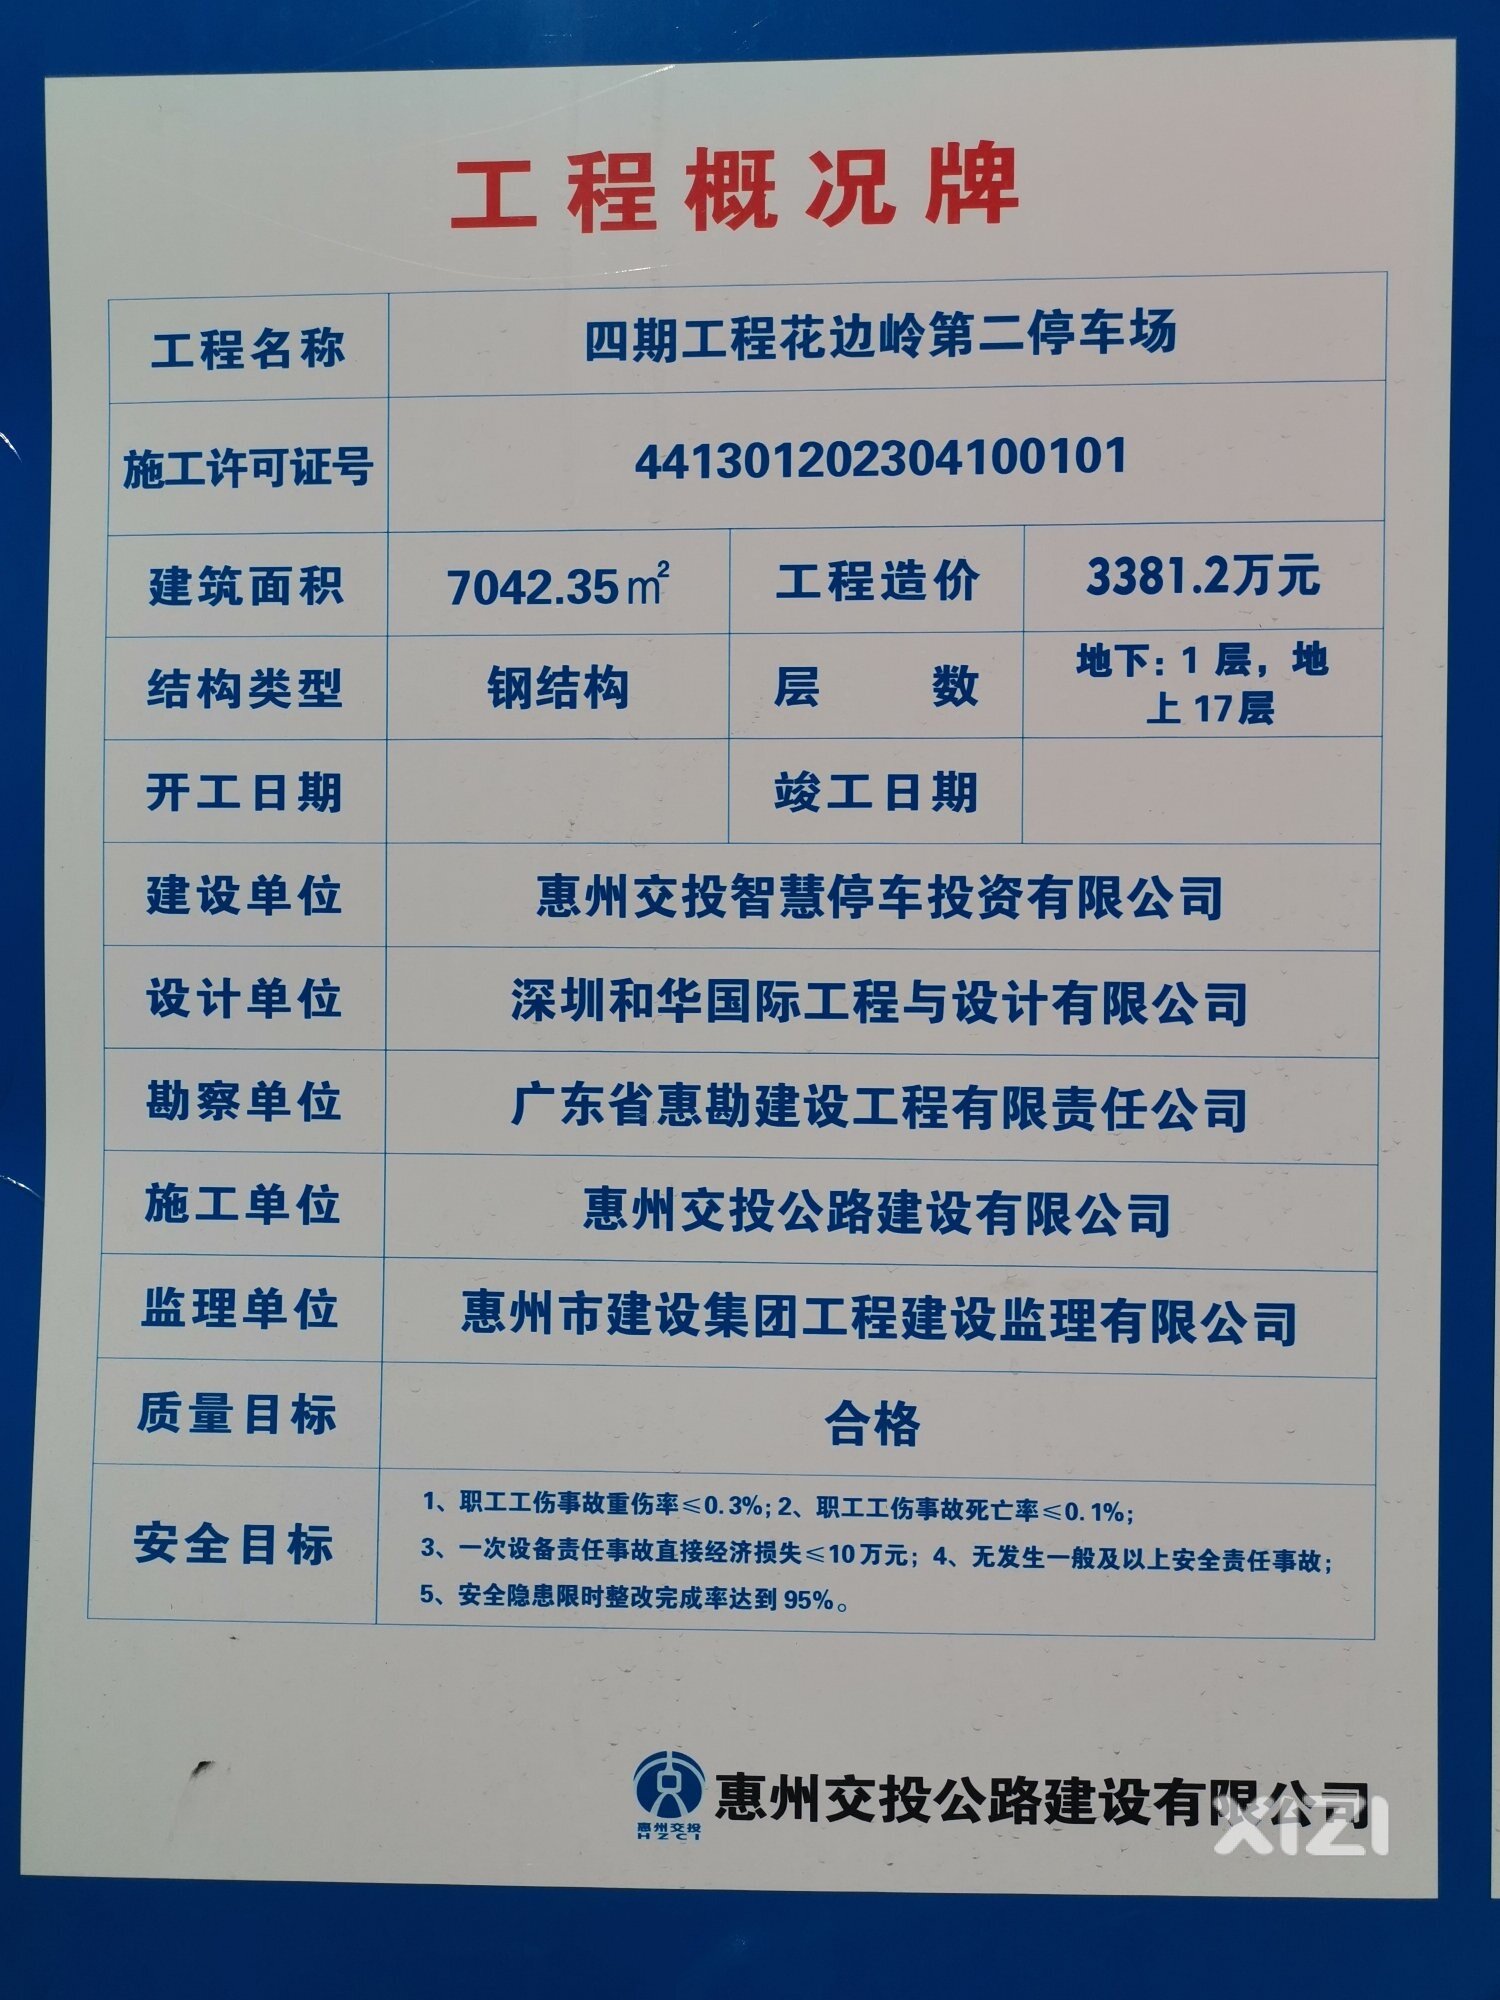 工程概况牌
工程名称 四期工程花边岭第二停车场
施工许可证号 441301202304100101
建筑面积 7042.35㎡ 工程造价 3381.2万元
结构类型 钢结构 层数 地下：1层，地
上17层
开工日期 竣工日期
建设单位 惠州交投智慧停车投资有限公司
设计单位 深圳和华国际工程与设计有限公司
勘察单位 广东省惠勘建设工程有限责任公司
施工单位 惠州交投公路建设有限公司
监理单位 惠州市建设集团工程建设监理有限公司
质量目标 合格
安全目标 1、职工工伤事故重伤率≤0.3%；2、职工工伤事故死亡率≤0.1%；
3、一次设备责任事故直接经济损失≤10万元；4、无发生一般及以上安全责任事故；
5、安全隐患限时整改完成率达到95%。
惠州交投公路建设有限公司
惠州交投
HZCI
XIZI